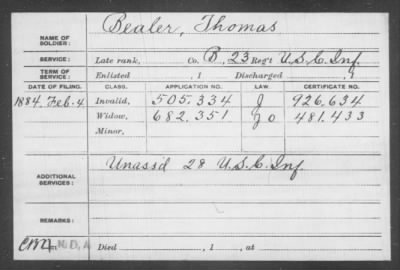 Bealer, Thomas
NAME OF SOLDIER:
SERVICE: Late rank, Co. B, 23 Reg't U.S.C. Inf.
TERM OF SERVICE: Enlisted , 1 Discharged , 1
DATE OF FILING. CLASS. APPLICATION NO. LAW. CERTIFICATE NO.
1884, Feb. 4. Invalid, 505.334 J 926,634
Widow, 682.351 J o 481.433
Minor,
ADDITIONAL SERVICES: Unassd 28 U.S.C. Inf.
REMARKS:
N.D.A Died , 1 , at